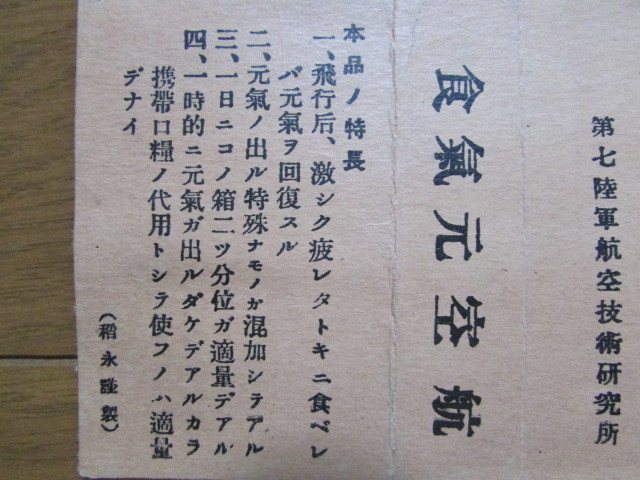 第七陸軍航空技術研究所
航空元氣食
本品ノ特長
一、飛行后、激シク疲レタトキニ食ベレ
バ元氣ヲ回復スル
二、元氣ノ出ル特殊ナモノガ混加シテアル
三、一日ニコノ箱二ツ分位ガ適量デアル
四、一時的ニ元氣ガ出ルダケデアルカラ
携帶口糧ノ代用トシテ使フノハ適量
デナイ
(稻永謹製)